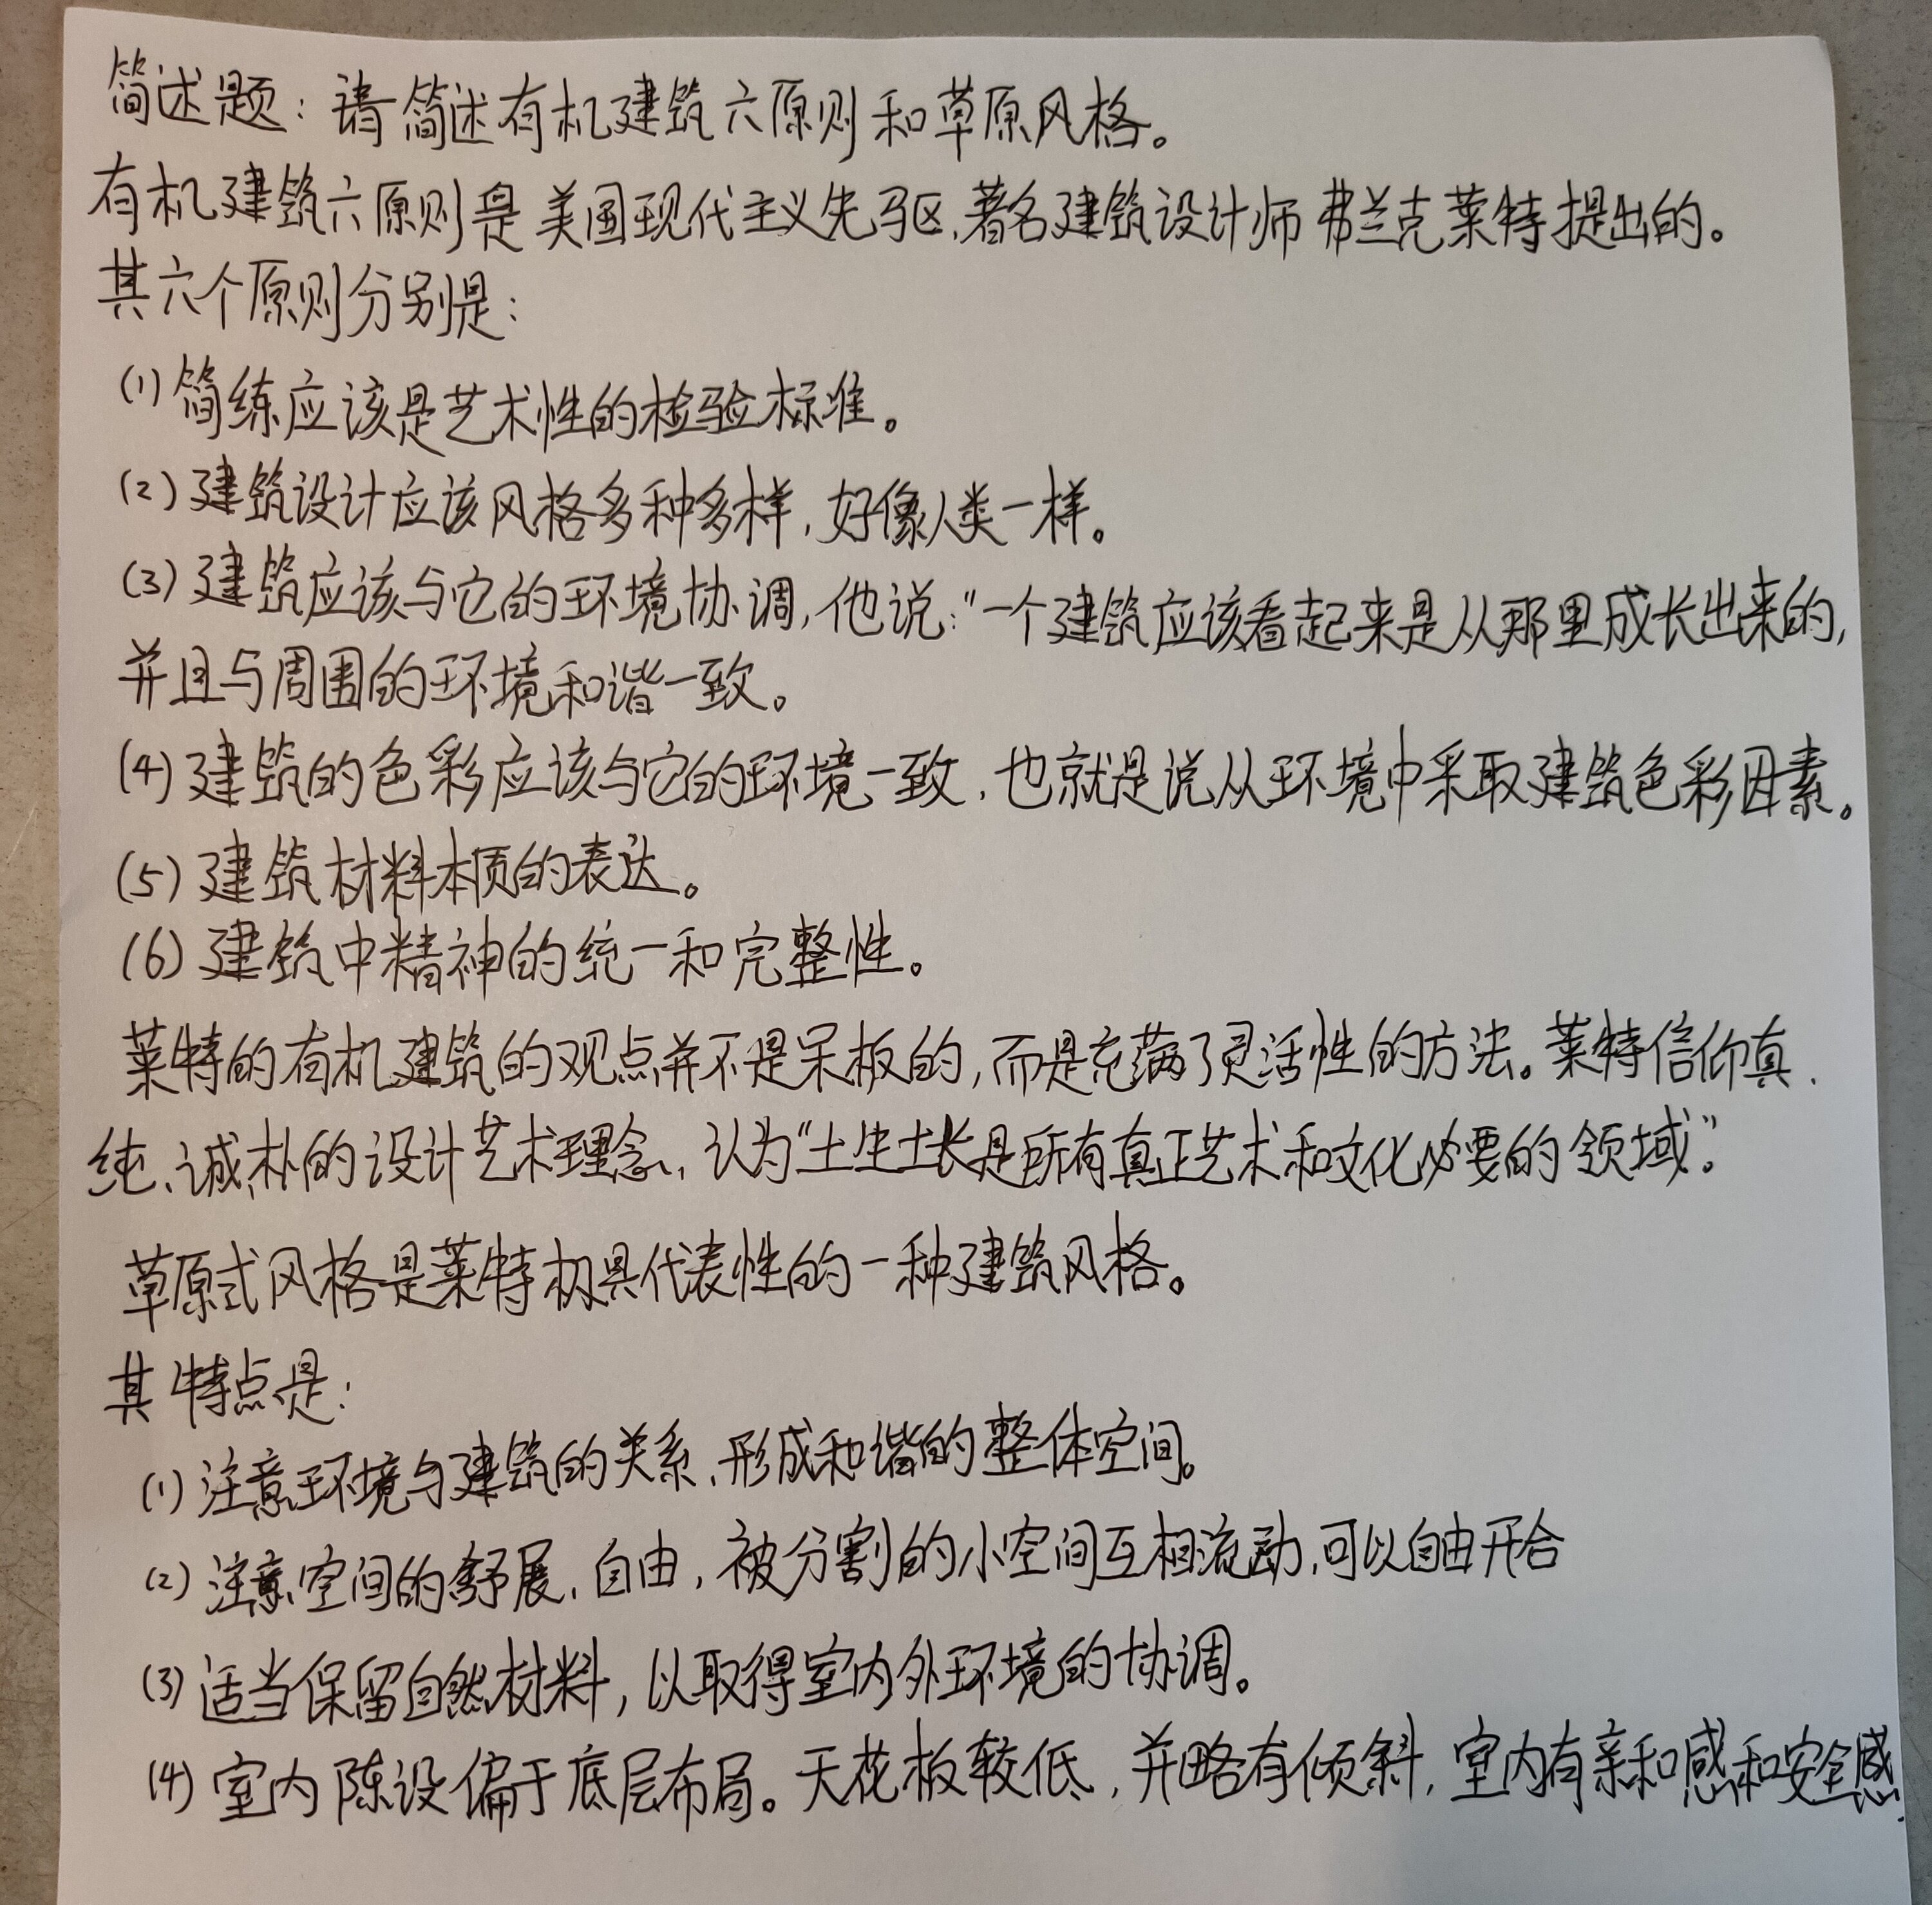 简述题：请简述有机建筑六原则和草原风格。
有机建筑六原则是美国现代主义先驱,著名建筑设计师弗兰克莱特提出的。
其六个原则分别是：
(1)简练应该是艺术性的检验标准。
(2)建筑设计应该风格多种多样,好像人类一样。
(3)建筑应该与它的环境协调,他说:"一个建筑应该看起来是从那里成长出来的,
并且与周围的环境和谐一致。
(4)建筑的色彩应该与它的环境一致,也就是说从环境中采取建筑色彩因素。
(5)建筑材料本质的表达。
(6)建筑中精神的统一和完整性。
莱特的有机建筑的观点并不是呆板的,而是充满了灵活性的方法。莱特信仰真、
纯、诚、朴的设计艺术理念,认为"土生土长是所有真正艺术和文化必要的领域"。
草原式风格是莱特极具代表性的一种建筑风格。
其特点是：
(1)注意环境与建筑的关系,形成和谐的整体空间。
(2)注意空间的舒展、自由,被分割的小空间互相流动,可以自由开合
(3)适当保留自然材料,以取得室内外环境的协调。
(4)室内陈设偏于底层布局。天花板较低,并略有倾斜,室内有亲和感和安全感.